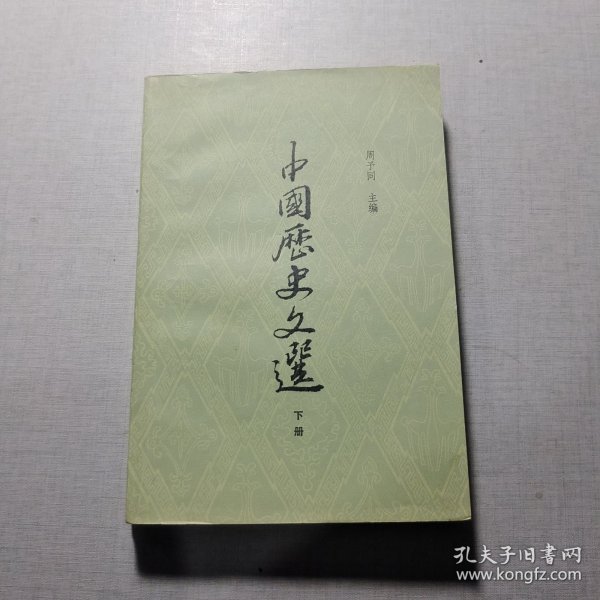 周予同 主编
中國歷史文選
下册
孔夫子旧書网
www.kongfz.com